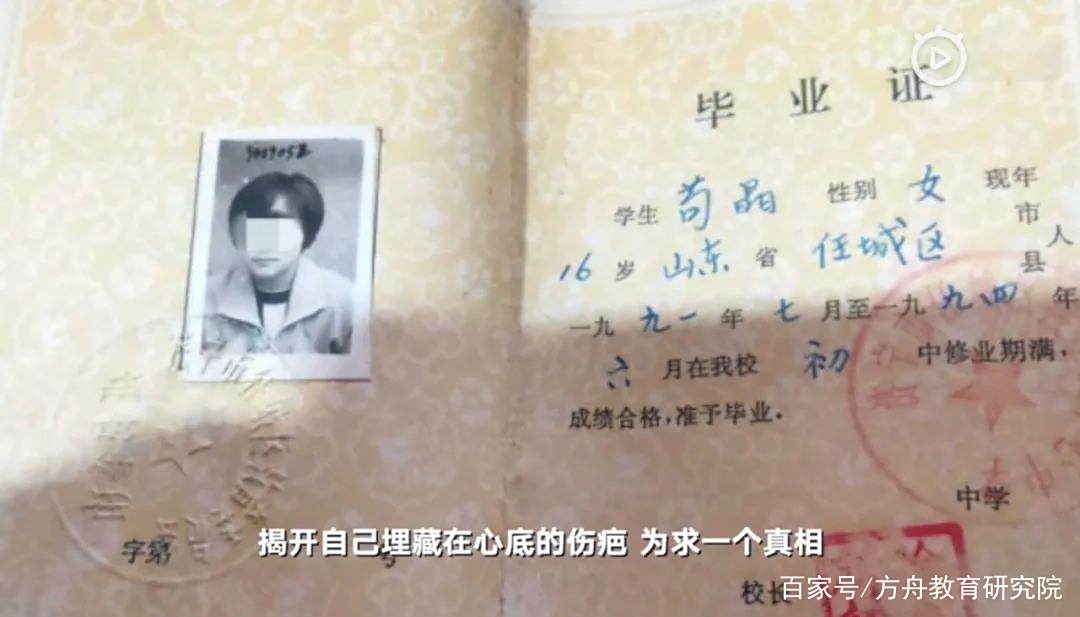 9409052
毕业证
学生 苟晶 性别 女 现年
16 岁 山东 省 任城区 市县 人
一九 九一 年 七 月至一九 九四 年
六 月在我校 初 中修业期满，
成绩合格，准予毕业。
中学
字第 号
校长
揭开自己埋藏在心底的伤疤 为求一个真相
百家号/方舟教育研究院